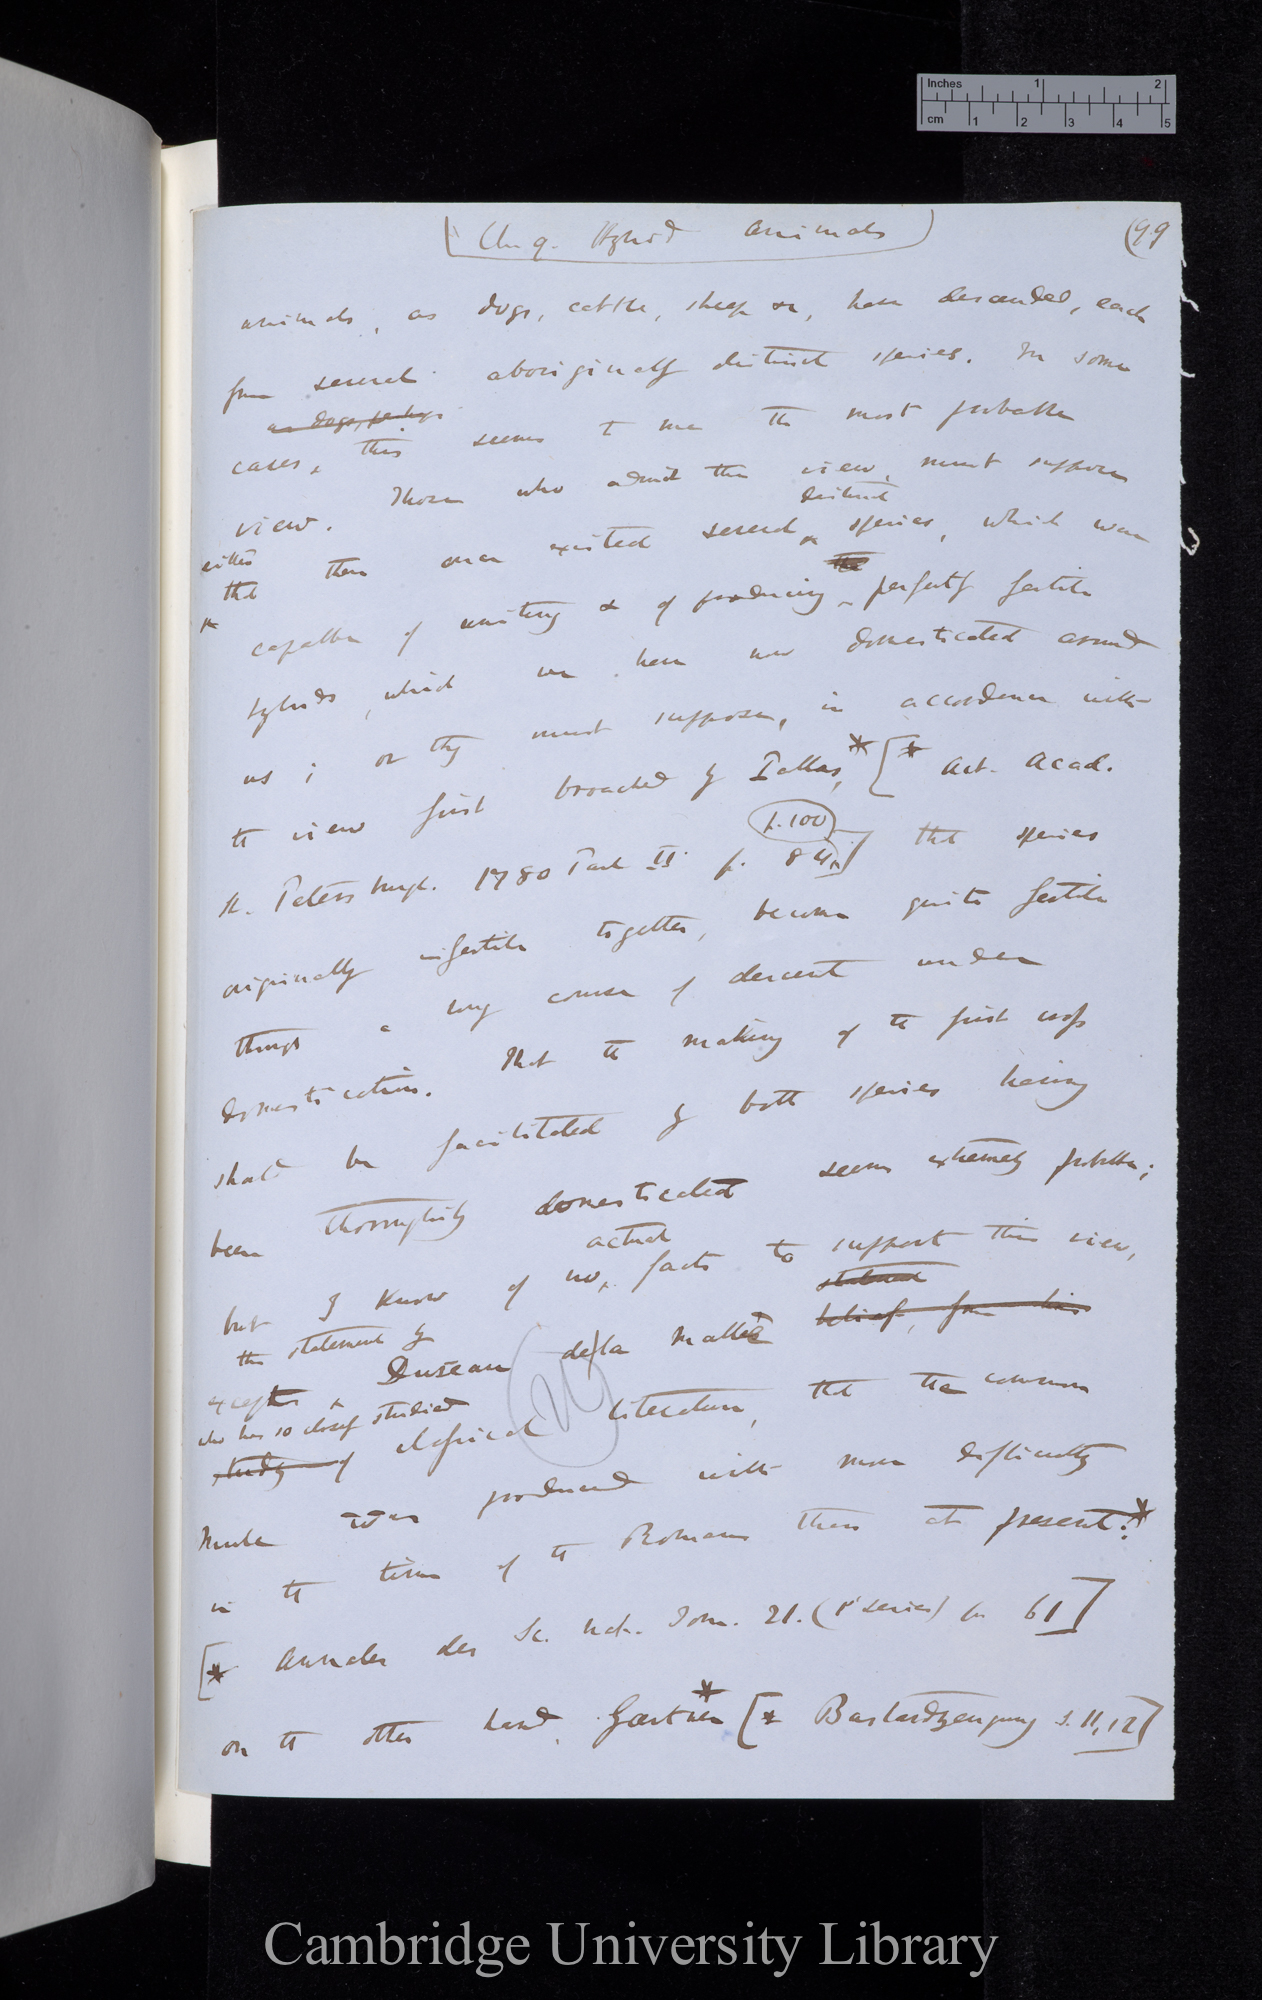 Inches 1 2
cm 1 2 3 4 5
Ch. 9. Hybrid Animals
(99
animals, as dogs, cattle, sheep &c, have descended, each
from several aboriginally distinct species. In some
as dogs, perhaps
cases, this seems to me the most probable
view. Those who admit this view, must suppose
distinct
either
that there once existed several species, which were
the
capable of uniting & of producing perfectly fertile
hybrids, which we have now domesticated around
us; or they must suppose, in accordance with
the view first broached by Pallas,* [* Act. Acad.
p. 100
St. Petersburgh. 1780 Part II p. 84,] that species
originally infertile together, become quite fertile
through a long course of descent under
domestication. That the making of the first cross
should be facilitated by both species having
been thoroughily domesticated seems extremely probable;
actual
but I know of no facts to support this view,
the statement by
statement
except Dureau de la Malle belief, from his
who has so closely studied
study of classical literature, that the common
mule was produced with more difficulty
in the time of the Romans than at present:*
[* Annales des Sc. Nat. Tom. 21. (1st series) p. 61]
on the other hand, Gærtner* [* Bastardzeugung s. 11, 12]
Cambridge University Library